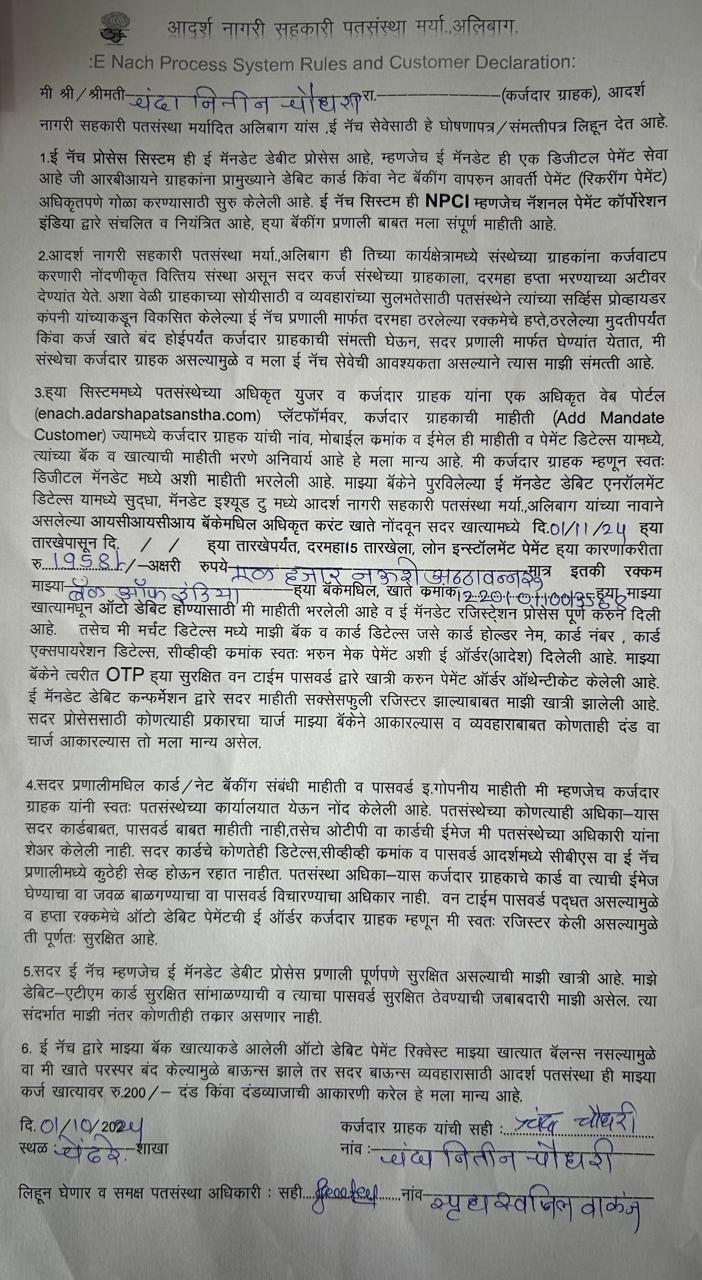 आदर्श नागरी सहकारी पतसंस्था मर्या.,अलिबाग.
:E Nach Process System Rules and Customer Declaration:
मी श्री/श्रीमती चंदा नितीन चौधरी रा.----------------(कर्जदार ग्राहक), आदर्श
नागरी सहकारी पतसंस्था मर्यादित अलिबाग यांस ,ई नॅच सेवेसाठी हे घोषणापत्र/संमत्तीपत्र लिहून देत आहे.
1.ई नॅच प्रोसेस सिस्टम ही ई मॅनडेट डेबीट प्रोसेस आहे, म्हणजेच ई मॅनडेट ही एक डिजीटल पेमेंट सेवा
आहे जी आरबीआयने ग्राहकांना प्रामुख्याने डेबिट कार्ड किंवा नेट बॅकींग वापरुन आवर्ती पेमेंट (रिकरींग पेमेंट)
अधिकृतपणे गोळा करण्यासाठी सुरु केलेली आहे. ई नॅच सिस्टम ही NPCI म्हणजेच नॅशनल पेमेंट कॉर्पोरेशन
इंडिया द्वारे संचलित व नियंत्रित आहे, ह्या बॅकींग प्रणाली बाबत मला संपूर्ण माहीती आहे.
2.आदर्श नागरी सहकारी पतसंस्था मर्या.,अलिबाग ही तिच्या कार्यक्षेत्रामध्ये संस्थेच्या ग्राहकांना कर्जवाटप
करणारी नोंदणीकृत वित्तिय संस्था असून सदर कर्ज संस्थेच्या ग्राहकाला, दरमहा हप्ता भरण्याच्या अटीवर
देण्यांत येते. अशा वेळी ग्राहकाच्या सोयीसाठी व व्यवहारांच्या सुलभतेसाठी पतसंस्थेने त्यांच्या सर्व्हिस प्रोव्हायडर
कंपनी यांच्याकडून विकसित केलेल्या ई नॅच प्रणाली मार्फत दरमहा ठरलेल्या रक्कमेचे हप्ते,ठरलेल्या मुदतीपर्यंत
किंवा कर्ज खाते बंद होईपर्यंत कर्जदार ग्राहकाची संमत्ती घेऊन, सदर प्रणाली मार्फत घेण्यांत येतात, मी
संस्थेचा कर्जदार ग्राहक असल्यामुळे व मला ई नॅच सेवेची आवश्यकता असल्याने त्यास माझी संमत्ती आहे.
3.ह्या सिस्टममध्ये पतसंस्थेच्या अधिकृत युजर व कर्जदार ग्राहक यांना एक अधिकृत वेब पोर्टल
(enach.adarshapatsanstha.com) प्लॅटफॉर्मवर, कर्जदार ग्राहकाची माहीती (Add Mandate
Customer) ज्यामध्ये कर्जदार ग्राहक यांची नांव, मोबाईल क्रमांक व ईमेल ही माहीती व पेमेंट डिटेल्स यामध्ये,
त्यांच्या बॅक व खात्याची माहीती भरणे अनिवार्य आहे हे मला मान्य आहे. मी कर्जदार ग्राहक म्हणून स्वतः
डिजीटल मॅनडेट मध्ये अशी माहीती भरलेली आहे. माझ्या बॅकेने पुरविलेल्या ई मॅनडेट डेबिट एनरॉलमेंट
डिटेल्स यामध्ये सुद्धा, मॅनडेट इश्यूड टु मध्ये आदर्श नागरी सहकारी पतसंस्था मर्या.,अलिबाग यांच्या नावाने
असलेल्या आयसीआयसीआय बॅकेमधिल अधिकृत करंट खाते नोंदवून सदर खात्यामध्ये दि.01/11/24 ह्या
तारखेपासून दि. / / ह्या तारखेपर्यंत, दरमहा15 तारखेला, लोन इन्स्टॉलमेंट पेमेंट ह्या कारणाकरीता
रु.19581/-अक्षरी रुपये हजार मात्र इतकी रक्कम
माझ्या बँक ऑफ इंडिया ह्या बॅकेमधिल, खाते क्रमांक ह्या माझ्या
खात्यामधून ऑटो डेबिट होण्यासाठी मी माहीती भरलेली आहे व ई मॅनडेट रजिस्ट्रेशन प्रोसेस पूर्ण करुन दिली
आहे. तसेच मी मर्चंट डिटेल्स मध्ये माझी बॅक व कार्ड डिटेल्स जसे कार्ड होल्डर नेम, कार्ड नंबर , कार्ड
एक्सपायरेशन डिटेल्स, सीव्हीव्ही क्रमांक स्वतः भरुन मेक पेमेंट अशी ई ऑर्डर(आदेश) दिलेली आहे. माझ्या
बॅकेने त्वरीत OTP ह्या सुरक्षित वन टाईम पासवर्ड द्वारे खात्री करुन पेमेंट ऑर्डर ऑथेन्टीकेट केलेली आहे.
ई मॅनडेट डेबिट कन्फर्मेशन द्वारे सदर माहीती सक्सेसफुली रजिस्टर झाल्याबाबत माझी खात्री झालेली आहे.
सदर प्रोसेससाठी कोणत्याही प्रकारचा चार्ज माझ्या बॅकेने आकारल्यास व व्यवहाराबाबत कोणताही दंड वा
चार्ज आकारल्यास तो मला मान्य असेल.
4.सदर प्रणालीमधिल कार्ड/नेट बॅकींग संबंधी माहीती व पासवर्ड इ.गोपनीय माहीती मी म्हणजेच कर्जदार
ग्राहक यांनी स्वतः पतसंस्थेच्या कार्यालयात येऊन नोंद केलेली आहे. पतसंस्थेच्या कोणत्याही अधिका–यास
सदर कार्डबाबत, पासवर्ड बाबत माहीती नाही,तसेच ओटीपी वा कार्डची ईमेज मी पतसंस्थेच्या अधिकारी यांना
शेअर केलेली नाही. सदर कार्डचे कोणतेही डिटेल्स,सीव्हीव्ही क्रमांक व पासवर्ड आदर्शमध्ये सीबीएस वा ई नॅच
प्रणालीमध्ये कुठेही सेव्ह होऊन रहात नाहीत. पतसंस्था अधिका–यास कर्जदार ग्राहकाचे कार्ड वा त्याची ईमेज
घेण्याचा वा जवळ बाळगण्याचा वा पासवर्ड विचारण्याचा अधिकार नाही. वन टाईम पासवर्ड पद्धत असल्यामुळे
व हप्ता रक्कमेचे ऑटो डेबिट पेमेंटची ई ऑर्डर कर्जदार ग्राहक म्हणून मी स्वतः रजिस्टर केली असल्यामुळे
ती पूर्णतः सुरक्षित आहे.
5.सदर ई नॅच म्हणजेच ई मॅनडेट डेबीट प्रोसेस प्रणाली पूर्णपणे सुरक्षित असल्याची माझी खात्री आहे. माझे
डेबिट–एटीएम कार्ड सुरक्षित सांभाळण्याची व त्याचा पासवर्ड सुरक्षित ठेवण्याची जबाबदारी माझी असेल. त्या
संदर्भात माझी नंतर कोणतीही तक्रार असणार नाही.
6. ई नॅच द्वारे माझ्या बॅक खात्याकडे आलेली ऑटो डेबिट पेमेंट रिक्वेस्ट माझ्या खात्यात बॅलन्स नसल्यामुळे
वा मी खाते परस्पर बंद केल्यामुळे बाऊन्स झाले तर सदर बाऊन्स व्यवहारासाठी आदर्श पतसंस्था ही माझ्या
कर्ज खात्यावर रु.200/– दंड किंवा दंडव्याजाची आकारणी करेल हे मला मान्य आहे.
दि.01/10/2024 कर्जदार ग्राहक यांची सही : चंदा चौधरी
स्थळ : चेंढरे शाखा नांव : चंदा नितीन चौधरी
लिहून घेणार व समक्ष पतसंस्था अधिकारी : सही नांव